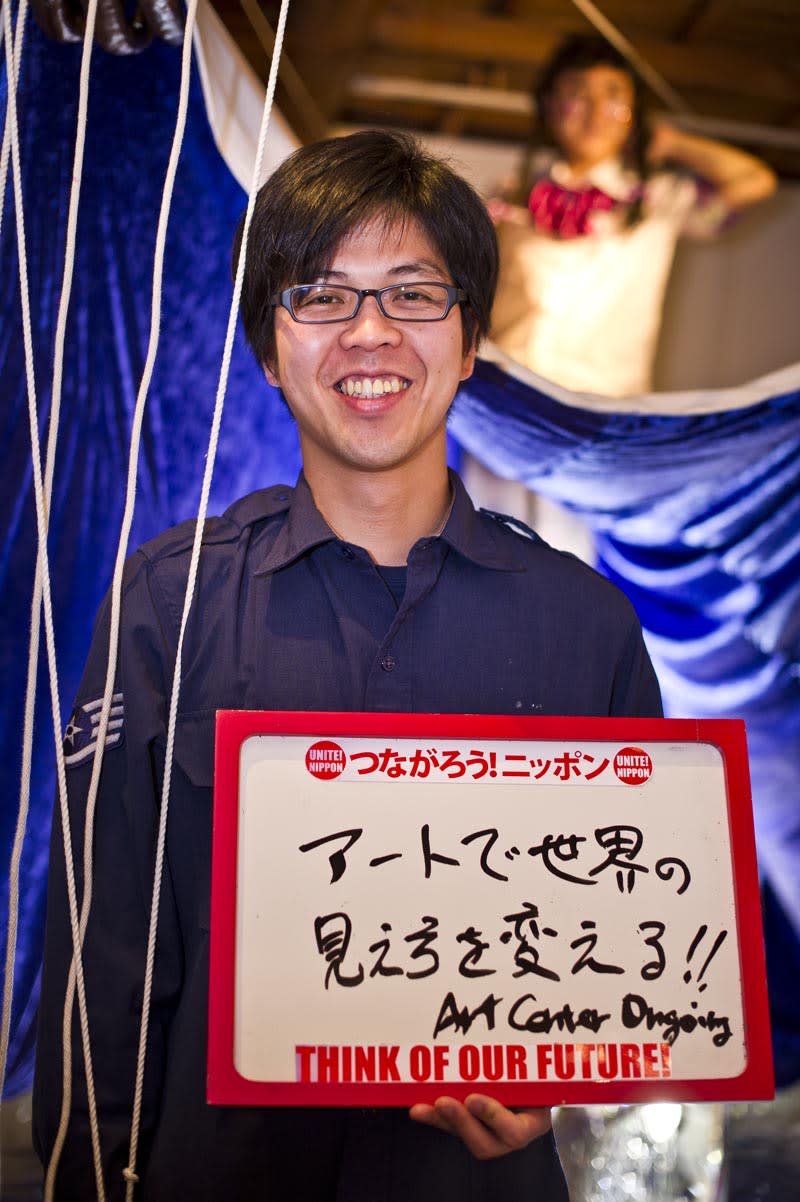 UNITE! NIPPON つながろう!ニッポン UNITE! NIPPON
アートで世界の
見え方を変える!!
Art Center Ongoing
THINK OF OUR FUTURE!